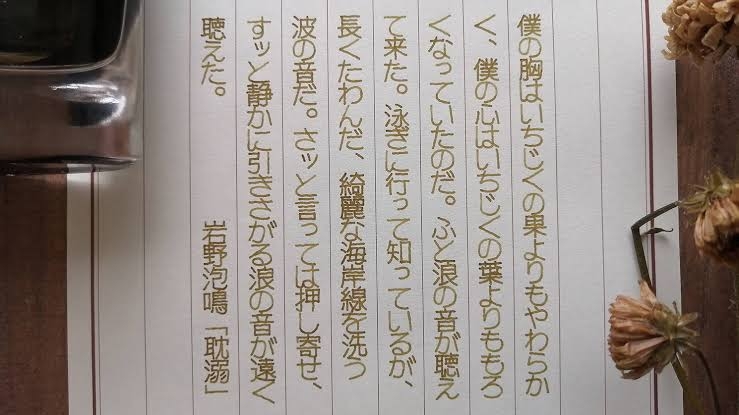 僕の胸はいちじくの果よりもやわらか
く、僕の心はいちじくの葉よりももろ
くなっていたのだ。ふと浪の音が聴え
て来た。泳ぎに行って知っているが、
長くたわんだ、綺麗な海岸線を洗う
波の音だ。さッと言っては押し寄せ、
すッと静かに引きさがる浪の音が遠く
聴えた。　　　　　岩野泡鳴「耽溺」